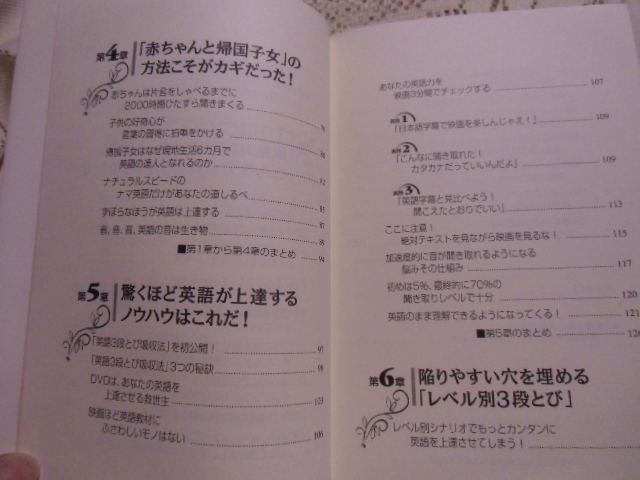 第4章 「赤ちゃんと帰国子女」の
方法こそがカギだった!
赤ちゃんは片言をしゃべるまでに
2000時間ひたすら聞きまくる
子供の好奇心が
言葉の習得に拍車をかける
帰国子女はなぜ現地生活6カ月で
英語の達人となれるのか
ナチュラルスピードの
ナマ英語だけがあなたの道しるべ
ずぼらなほうが英語は上達する
音、音、音、英語の音は生き物
■第1章から第4章のまとめ 94
第5章 驚くほど英語が上達する
ノウハウはこれだ!
「英語3段とび吸収法」を初公開! 97
「英語3段とび吸収法」3つの秘訣 98
DVDは、あなたの英語を
上達させる救世主 103
映画ほど英語教材に
ふさわしいモノはない 106
あなたの英語力を
映画3分間でチェックする 107
1
「日本語字幕で映画を楽しんじゃえ!」 109
2
「こんなに聞き取れた!
カタカナだっていいんだよ」 109
3
「英語字幕と見比べよう!
聞こえたとおりでいい」 113
ここに注意!
絶対テキストを見ながら映画を見るな! 115
加速度的に音が聞き取れるようになる
脳みその仕組み 117
初めは5%、最終的に70%の
聞き取りレベルで十分 120
英語のまま理解できるようになってくる! 121
■第5章のまとめ
第6章 陥りやすい穴を埋める
「レベル別3段とび」
レベル別シナリオでもっとカンタンに
英語を上達させてしまう!